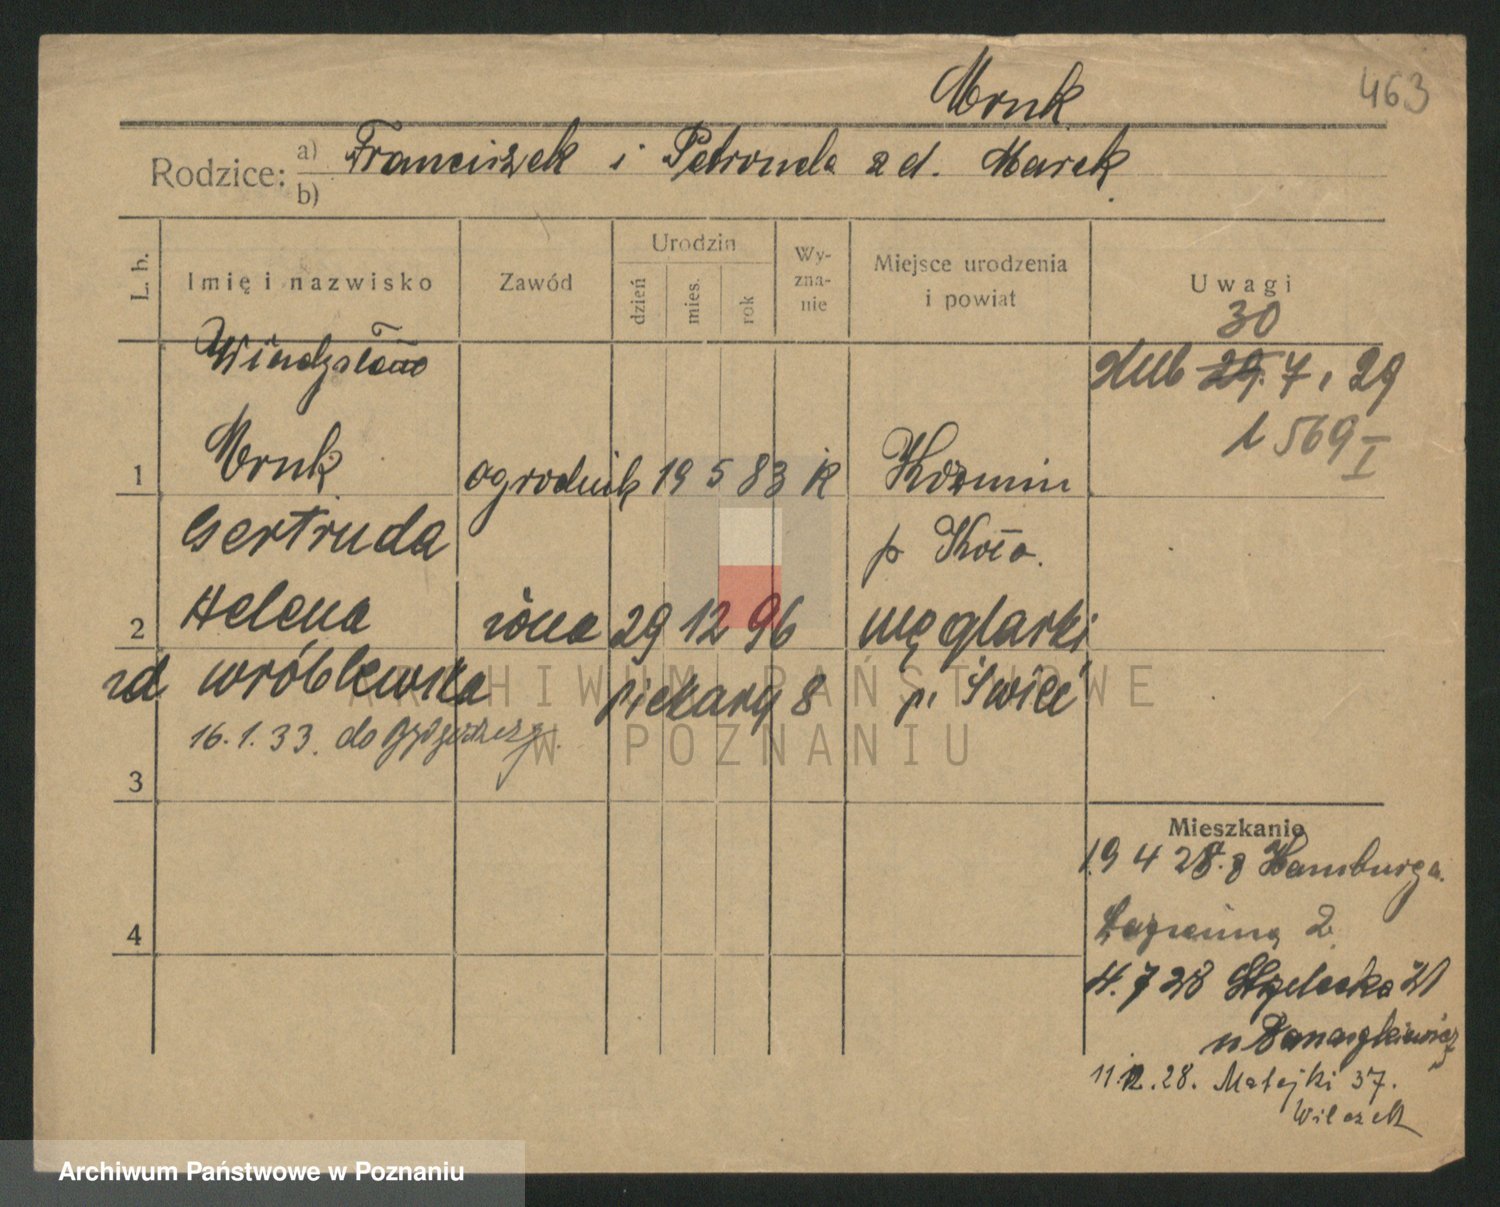 Mruk
463
Rodzice: a) Franciszek i Petronela z d. Marek
b)
L. b.
Imię i nazwisko
Zawód
Urodzin
dzień
mies.
rok
Wy-
zna-
nie
Miejsce urodzenia
i powiat
Uwagi
30
Władysław
ślub 29. 7. 29
1 569 I
1 Mruk ogrodnik 19 5 83 K Koźmin
Gertruda p Koło.
2 Helena żona 29 12 96 Węglarki
zd Wróblewska Piekary 8 p. Świec
16.1.33. do Bydgoszczy.
3
4
Mieszkanie
19 4 28. z Hamburga.
Łazienna 2
4. 7 28 Strzelecka 21
u Banaszkiewicz
11.12.28. Matejki 37.
Wilczek
ARCHIWUM PAŃSTWOWE
W POZNANIU
Archiwum Państwowe w Poznaniu